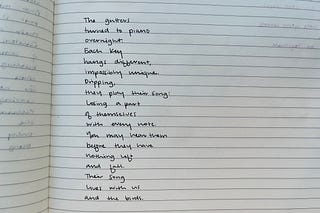 The gutters
turned to piano
overnight.
Each key
hangs different,
impossibly unique.
Dripping,
they play their song:
Losing a part
of themselves
with every note.
You may hear them
before they have
nothing left
and fall.
Their song
lives with us
and the birds.